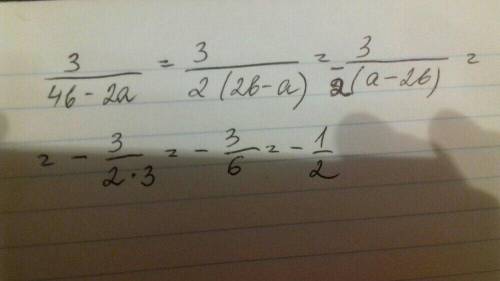 3/(4b - 2a) = 3/(2(2b-a)) = -3/(2(a-2b)) =
= - 3/(2·3) = - 3/6 = - 1/2